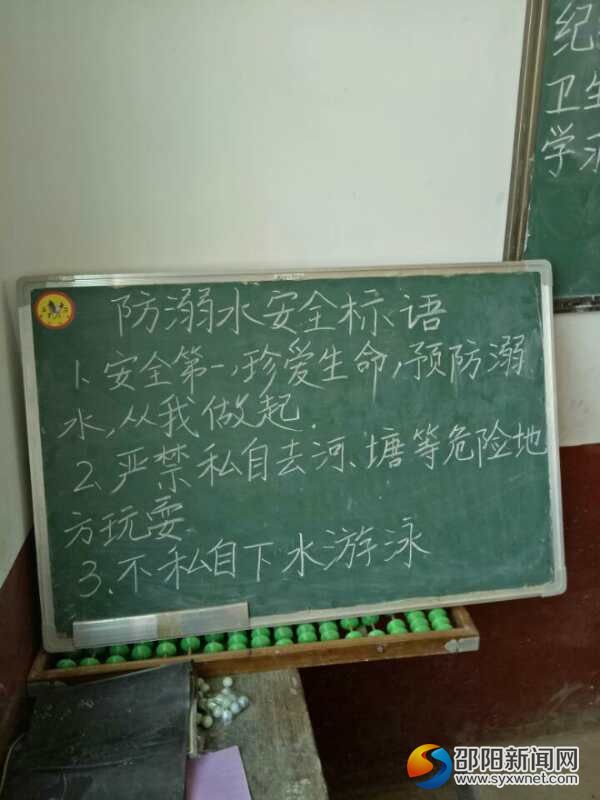 防溺水安全标语
1、安全第一,珍爱生命,预防溺
水,从我做起.
2、严禁私自去河、塘等危险地
方玩耍
3、不私自下水游泳
纪
卫生
学习
邵阳新闻网
www.syxwnet.com